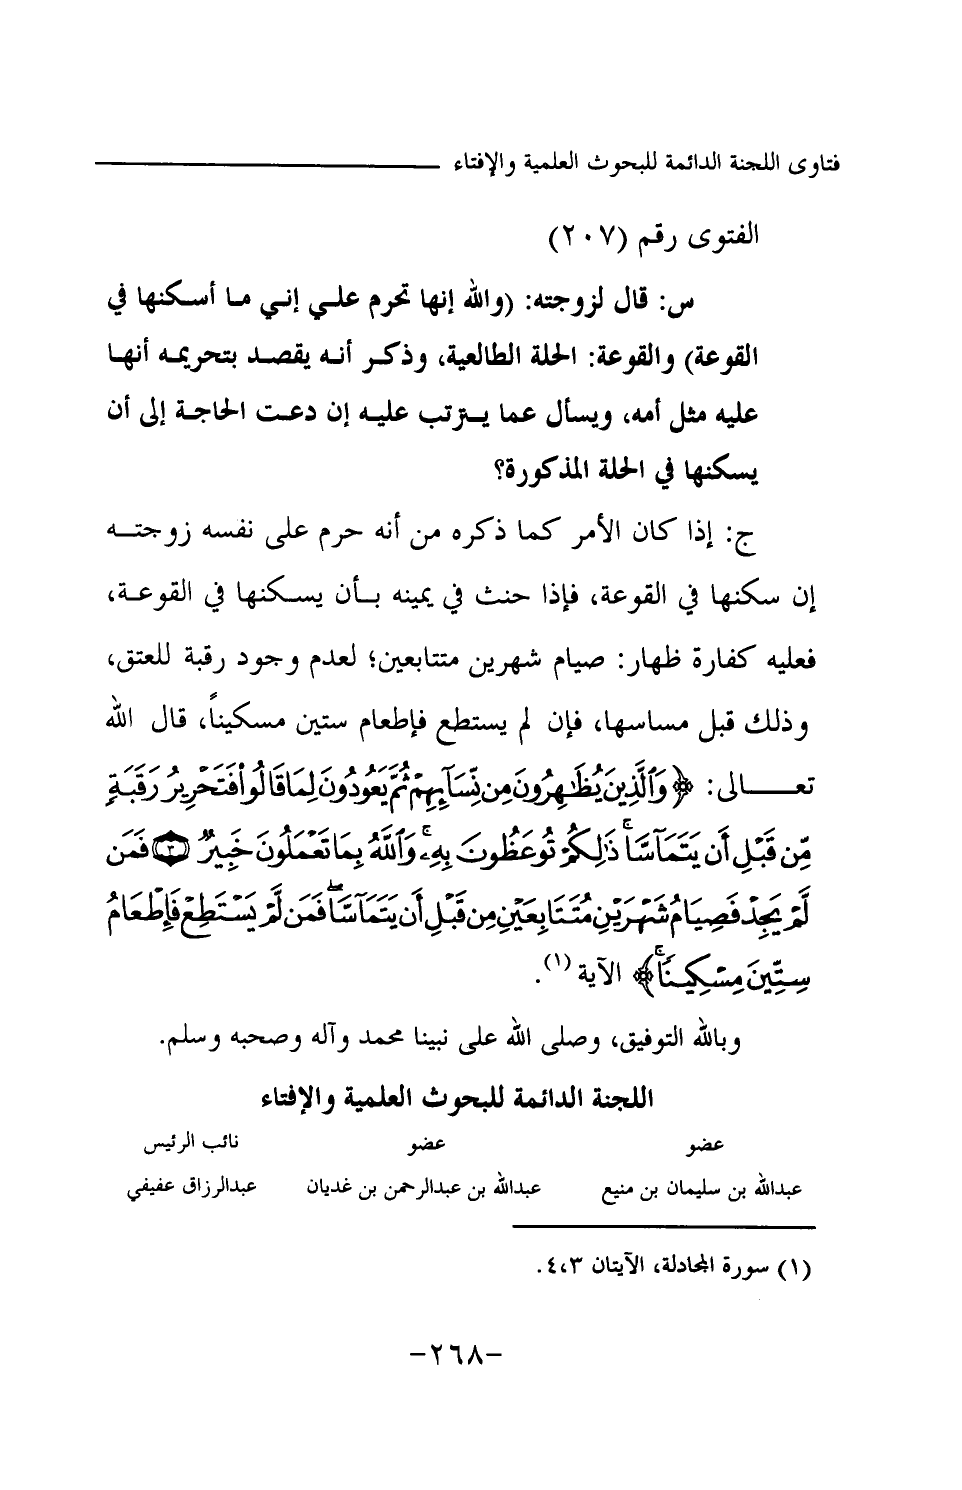 فتاوى اللجنة الدائمة للبحوث العلمية والإفتاء
الفتوى رقم (٢٠٧)
س: قال لزوجته: (والله إنها تحرم علي إني ما أسكنها في
القوعة) والقوعة: الحلة الطالعية، وذكر أنه يقصد بتحريمه أنها
عليه مثل أمه، ويسأل عما يترتب عليه إن دعت الحاجة إلى أن
يسكنها في الحلة المذكورة؟
ج: إذا كان الأمر كما ذكره من أنه حرم على نفسه زوجته
إن سكنها في القوعة، فإذا حنث في يمينه بأن يسكنها في القوعة،
فعليه كفارة ظهار: صيام شهرين متتابعين؛ لعدم وجود رقبة للعتق،
وذلك قبل مساسها، فإن لم يستطع فإطعام ستين مسكيناً، قال الله
تعالى: ﴿وَٱلَّذِينَ يُظَٰهِرُونَ مِن نِّسَآئِهِمْ ثُمَّ يَعُودُونَ لِمَا قَالُوا۟ فَتَحْرِيرُ رَقَبَةٍ
مِّن قَبْلِ أَن يَتَمَآسَّا ۚ ذَٰلِكُمْ تُوعَظُونَ بِهِۦ ۚ وَٱللَّهُ بِمَا تَعْمَلُونَ خَبِيرٌ (٣) فَمَن
لَّمْ يَجِدْ فَصِيَامُ شَهْرَيْنِ مُتَتَابِعَيْنِ مِن قَبْلِ أَن يَتَمَآسَّا ۖ فَمَن لَّمْ يَسْتَطِعْ فَإِطْعَامُ
سِتِّينَ مِسْكِينًا ۚ﴾ الآية (١).
وبالله التوفيق، وصلى الله على نبينا محمد وآله وصحبه وسلم.
اللجنة الدائمة للبحوث العلمية والإفتاء
عضو عضو نائب الرئيس
عبدالله بن سليمان بن منيع عبدالله بن عبدالرحمن بن غديان عبدالرزاق عفيفي
(١) سورة المجادلة، الآيتان ٣،٤.
-٢٦٨-